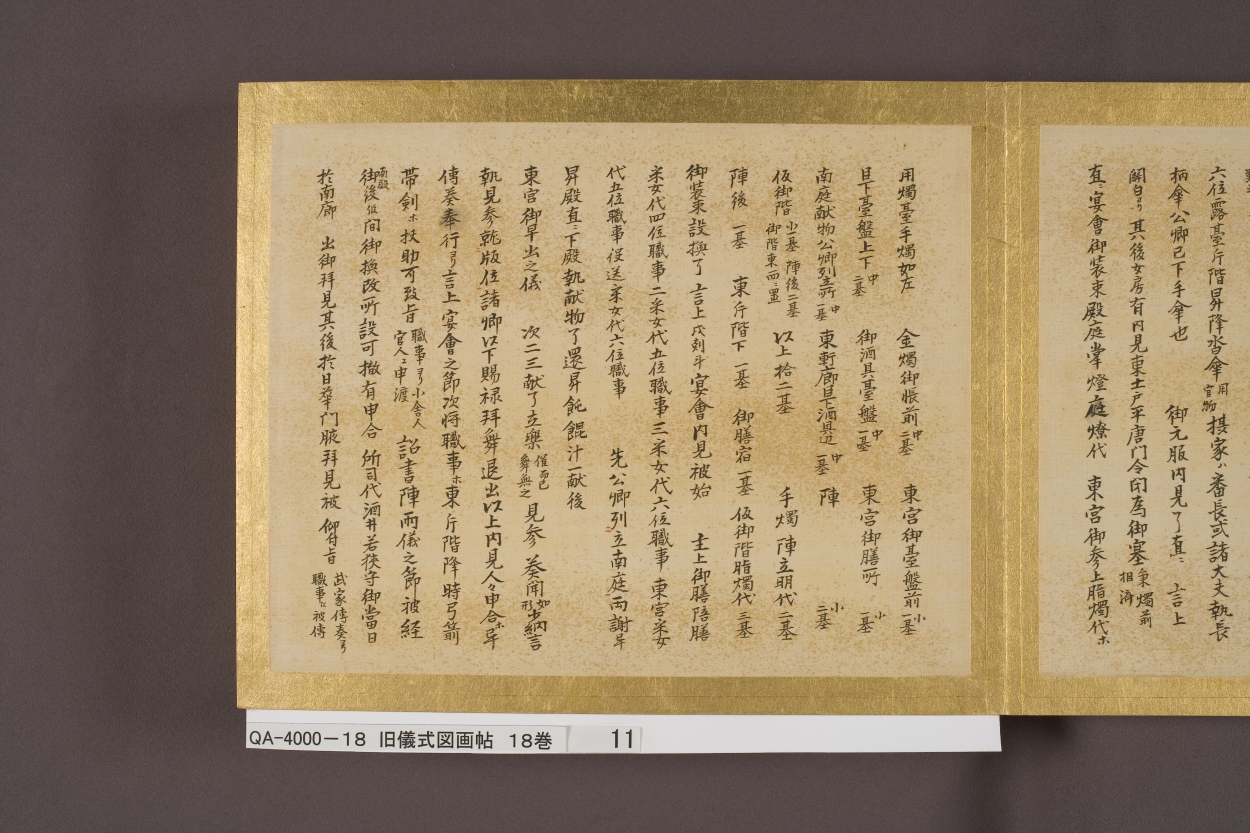 六位露臺斤階昇降沓傘用官物摂家ハ番長或諸大夫執長
柄傘公卿已下手傘也 御元服内見了直ニ 言上
関白ヨリ 其後女房有内見東土戸平唐門令開為御塞秉燭前相済
直ニ宴會御装束殿庭掌燈庭燎代 東宮御参上脂燭代ホ
用燭臺手燭如左 金燭御帳前中二基 東宮御臺盤前小一基
臣下臺盤上下中二基 御酒具臺盤中一基 東宮御膳所小一基
南庭献物公卿列立所中一基 東軒廊臣下酒具辺中一基 陣小三基
仮御階小二基陣後二基御階東西ニ置 以上拾二基 手燭 陣立明代二基
陣後 一基 東斤階下 一基 御膳宿一基 仮御階脂燭代三基
御装束設換了 言上戌刻斗宴會内見被始 主上御膳陪膳
采女代四位職事二采女代五位職事三采女代六位職事 東宮采女
代五位職事役送采女代六位職事 先公卿列立南庭両謝畢
昇殿直ニ下殿執献物了還昇飩餛汁一献後
東宮御早出之儀 次二三献了立樂催而已舞無之 見参 奏聞如形少納言
執見参就版位諸卿以下賜禄拜舞退出以上内見人々申合ホ畢
傳奏奉行ヨリ言上宴會之節次将職事ホ東斤階降時弓箭
帯劍ホ扶助可致旨職事ヨリ小舎人官人ニ申渡 詔書陣両儀之節被経
南殿御後仮間御換改所設可撤有申合 所司代酒井若狭守御當日
於南廊 出御拜見其後於日華門腋拜見被 仰付旨武家傳奏ヨリ職事ニ被傳
QA-4000-18 旧儀式図画帖 18巻 11